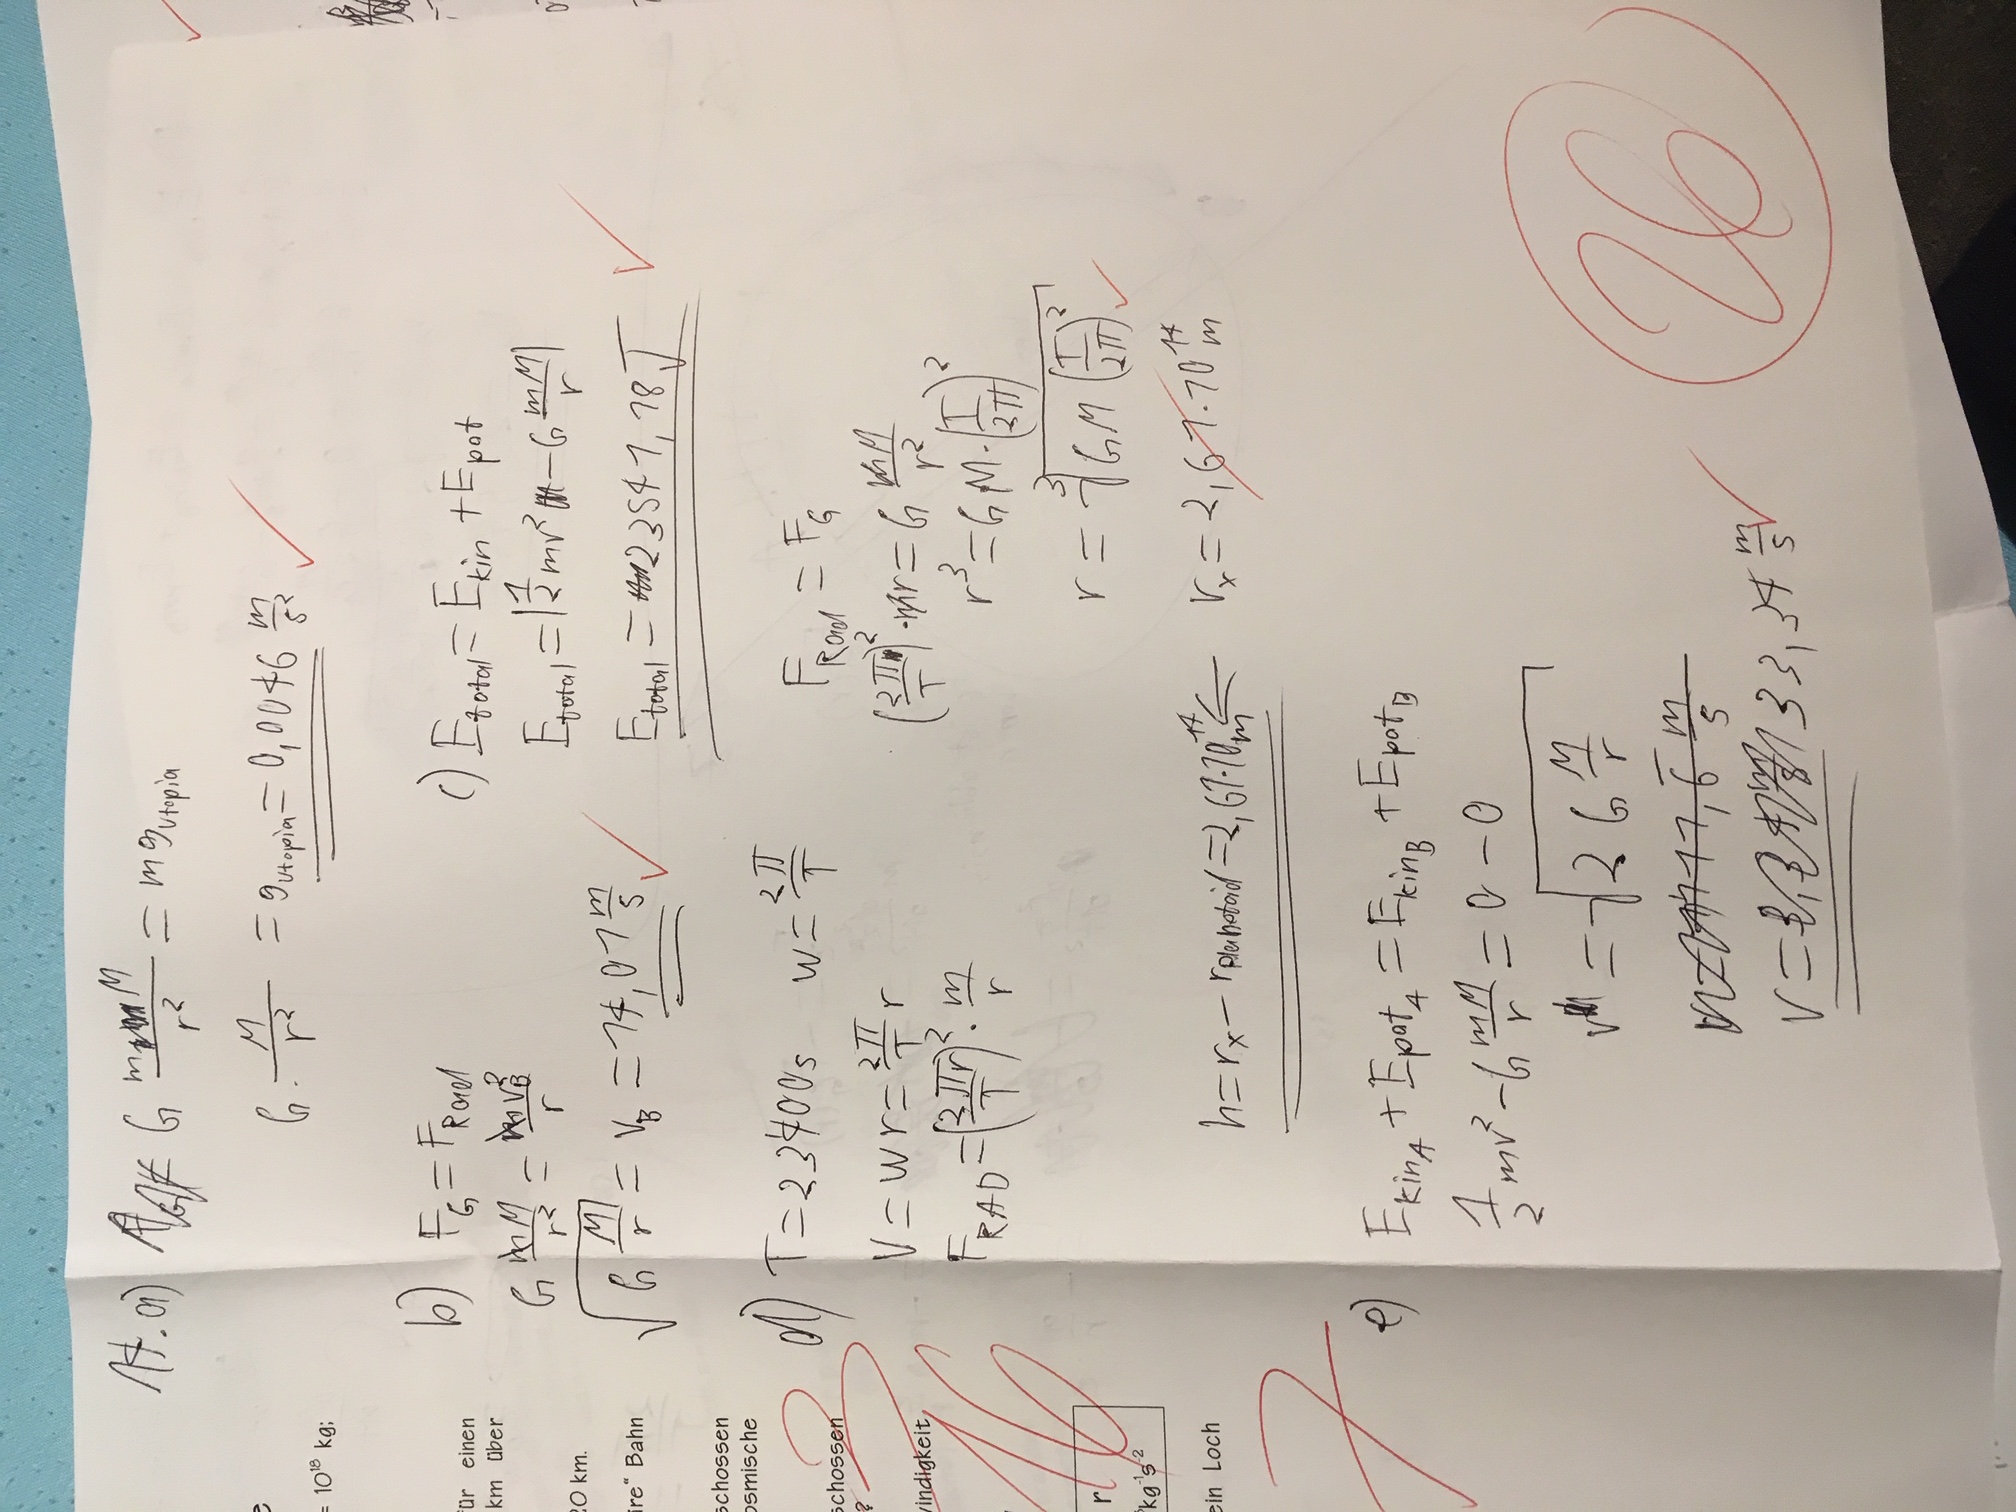 = 10¹⁸ kg;
für einen
km über
20 km.
ire" Bahn
schossen
osmische
schossen
?
windigkeit
r
kg⁻¹s⁻²
ein Loch
3
16
7
14. a) G mM/r² = m g_Utopia
G · M/r² = g_Utopia = 0,0046 m/s²
b) F_G = F_Rad
G mM/r² = m v_B²/r
√(G M/r) = v_B = 14,01 m/s
c) E_total = E_kin + E_pot
E_total = |1/2 mv² - G mM/r|
E_total = 23541,18 J
d) T = 23400s w = 2π/T
V = w r = 2π/T r
F_RAD = (2πr/T)² · m/r
F_Rad = F_G
(2π/T)² · mr = G mM/r²
r³ = GM · (T/2π)²
r = ³√(GM (T/2π)²)
r_x = 2,61·10¹⁴ m
h = r_x - r_Planetoid = 2,61·10¹⁴ m
e) E_kin_A + E_pot_A = E_kin_B + E_pot_B
1/2 mv² - G mM/r = 0 - 0
v = √(2 G M/r)
v = 33,34 m/s
26